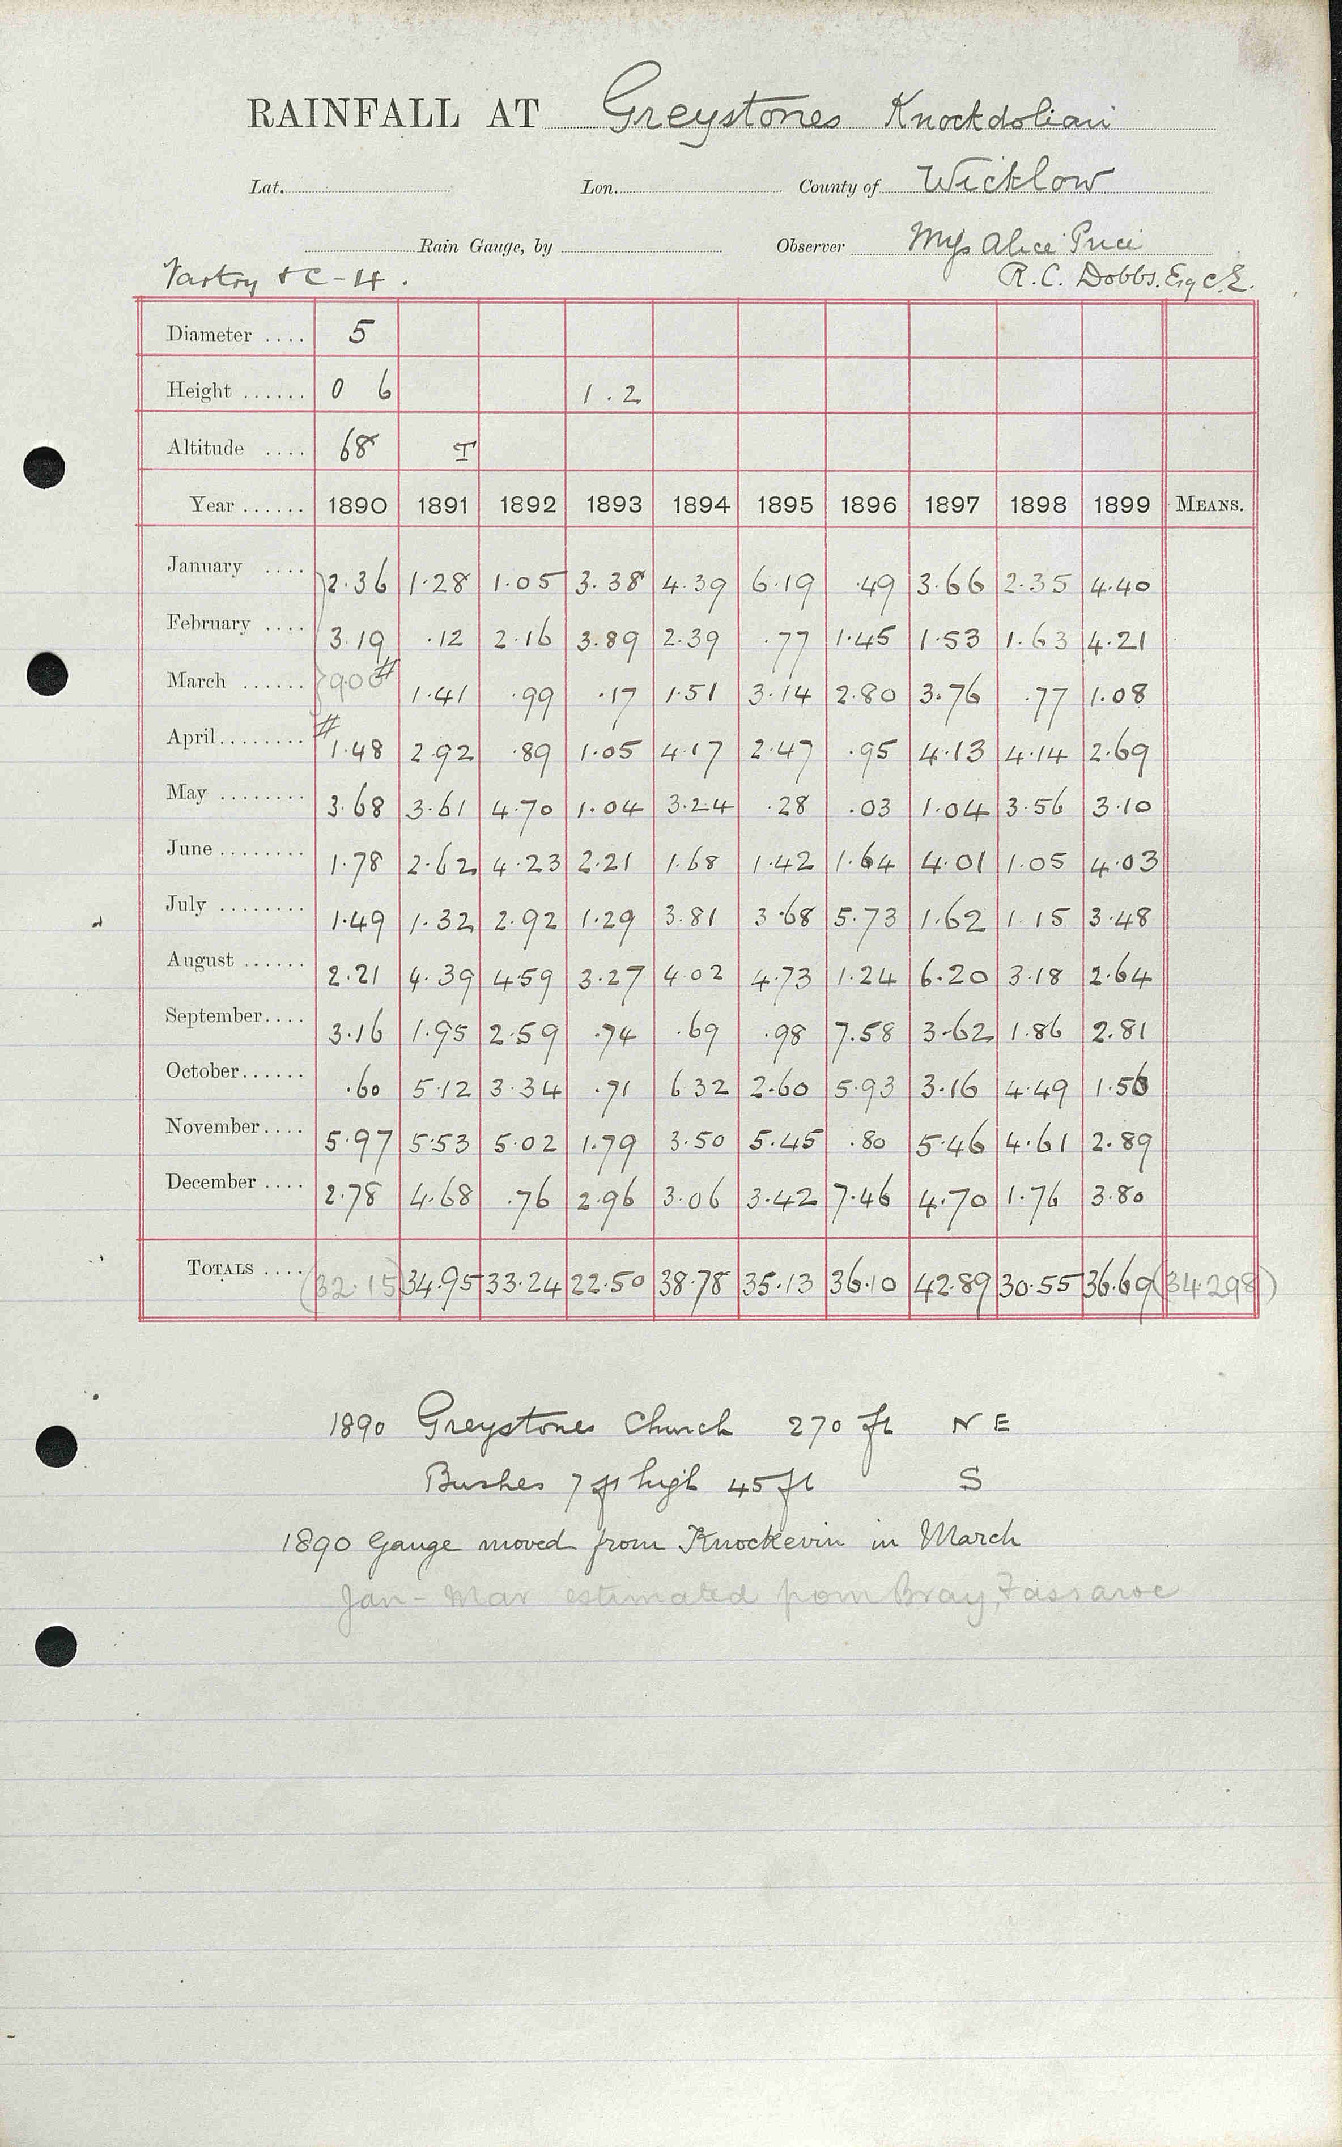 RAINFALL AT Greystones Knockdolian
Lat. Lon. County of Wicklow
Rain Gauge, by Observer Mrs Alice Price
Vartry & C-14. R. C. Dobbs. Esq C.E.
Diameter .... 5
Height ...... 0 6 1.2
Altitude .... 68 T
Year ...... 1890 1891 1892 1893 1894 1895 1896 1897 1898 1899 MEANS.
January .... 2.36 1.28 1.05 3.38 4.39 6.19 .49 3.66 2.35 4.40
February .... 3.19 .12 2.16 3.89 2.39 .77 1.45 1.53 1.63 4.21
March ...... 9.00# 1.41 .99 .17 1.51 3.14 2.80 3.76 .77 1.08
April........ #1.48 2.92 .89 1.05 4.17 2.47 .95 4.13 4.14 2.69
May ........ 3.68 3.61 4.70 1.04 3.24 .28 .03 1.04 3.56 3.10
June ........ 1.78 2.62 4.23 2.21 1.68 1.42 1.64 4.01 1.05 4.03
July ........ 1.49 1.32 2.92 1.29 3.81 3.68 5.73 1.62 1.15 3.48
August ...... 2.21 4.39 4.59 3.27 4.02 4.73 1.24 6.20 3.18 2.64
September.... 3.16 1.95 2.59 .74 .69 .98 7.58 3.62 1.86 2.81
October...... .60 5.12 3.34 .71 6.32 2.60 5.93 3.16 4.49 1.56
November.... 5.97 5.53 5.02 1.79 3.50 5.45 .80 5.46 4.61 2.89
December .... 2.78 4.68 .76 2.96 3.06 3.42 7.46 4.70 1.76 3.80
TOTALS .... (32.15) 34.95 33.24 22.50 38.78 35.13 36.10 42.89 30.55 36.69 (34.298)
1890 Greystones Church 270 ft N E
Bushes 7 ft high 45 ft S
1890 Gauge moved from Knockevin in March
Jan - Mar estimated from Bray, Fassaroe